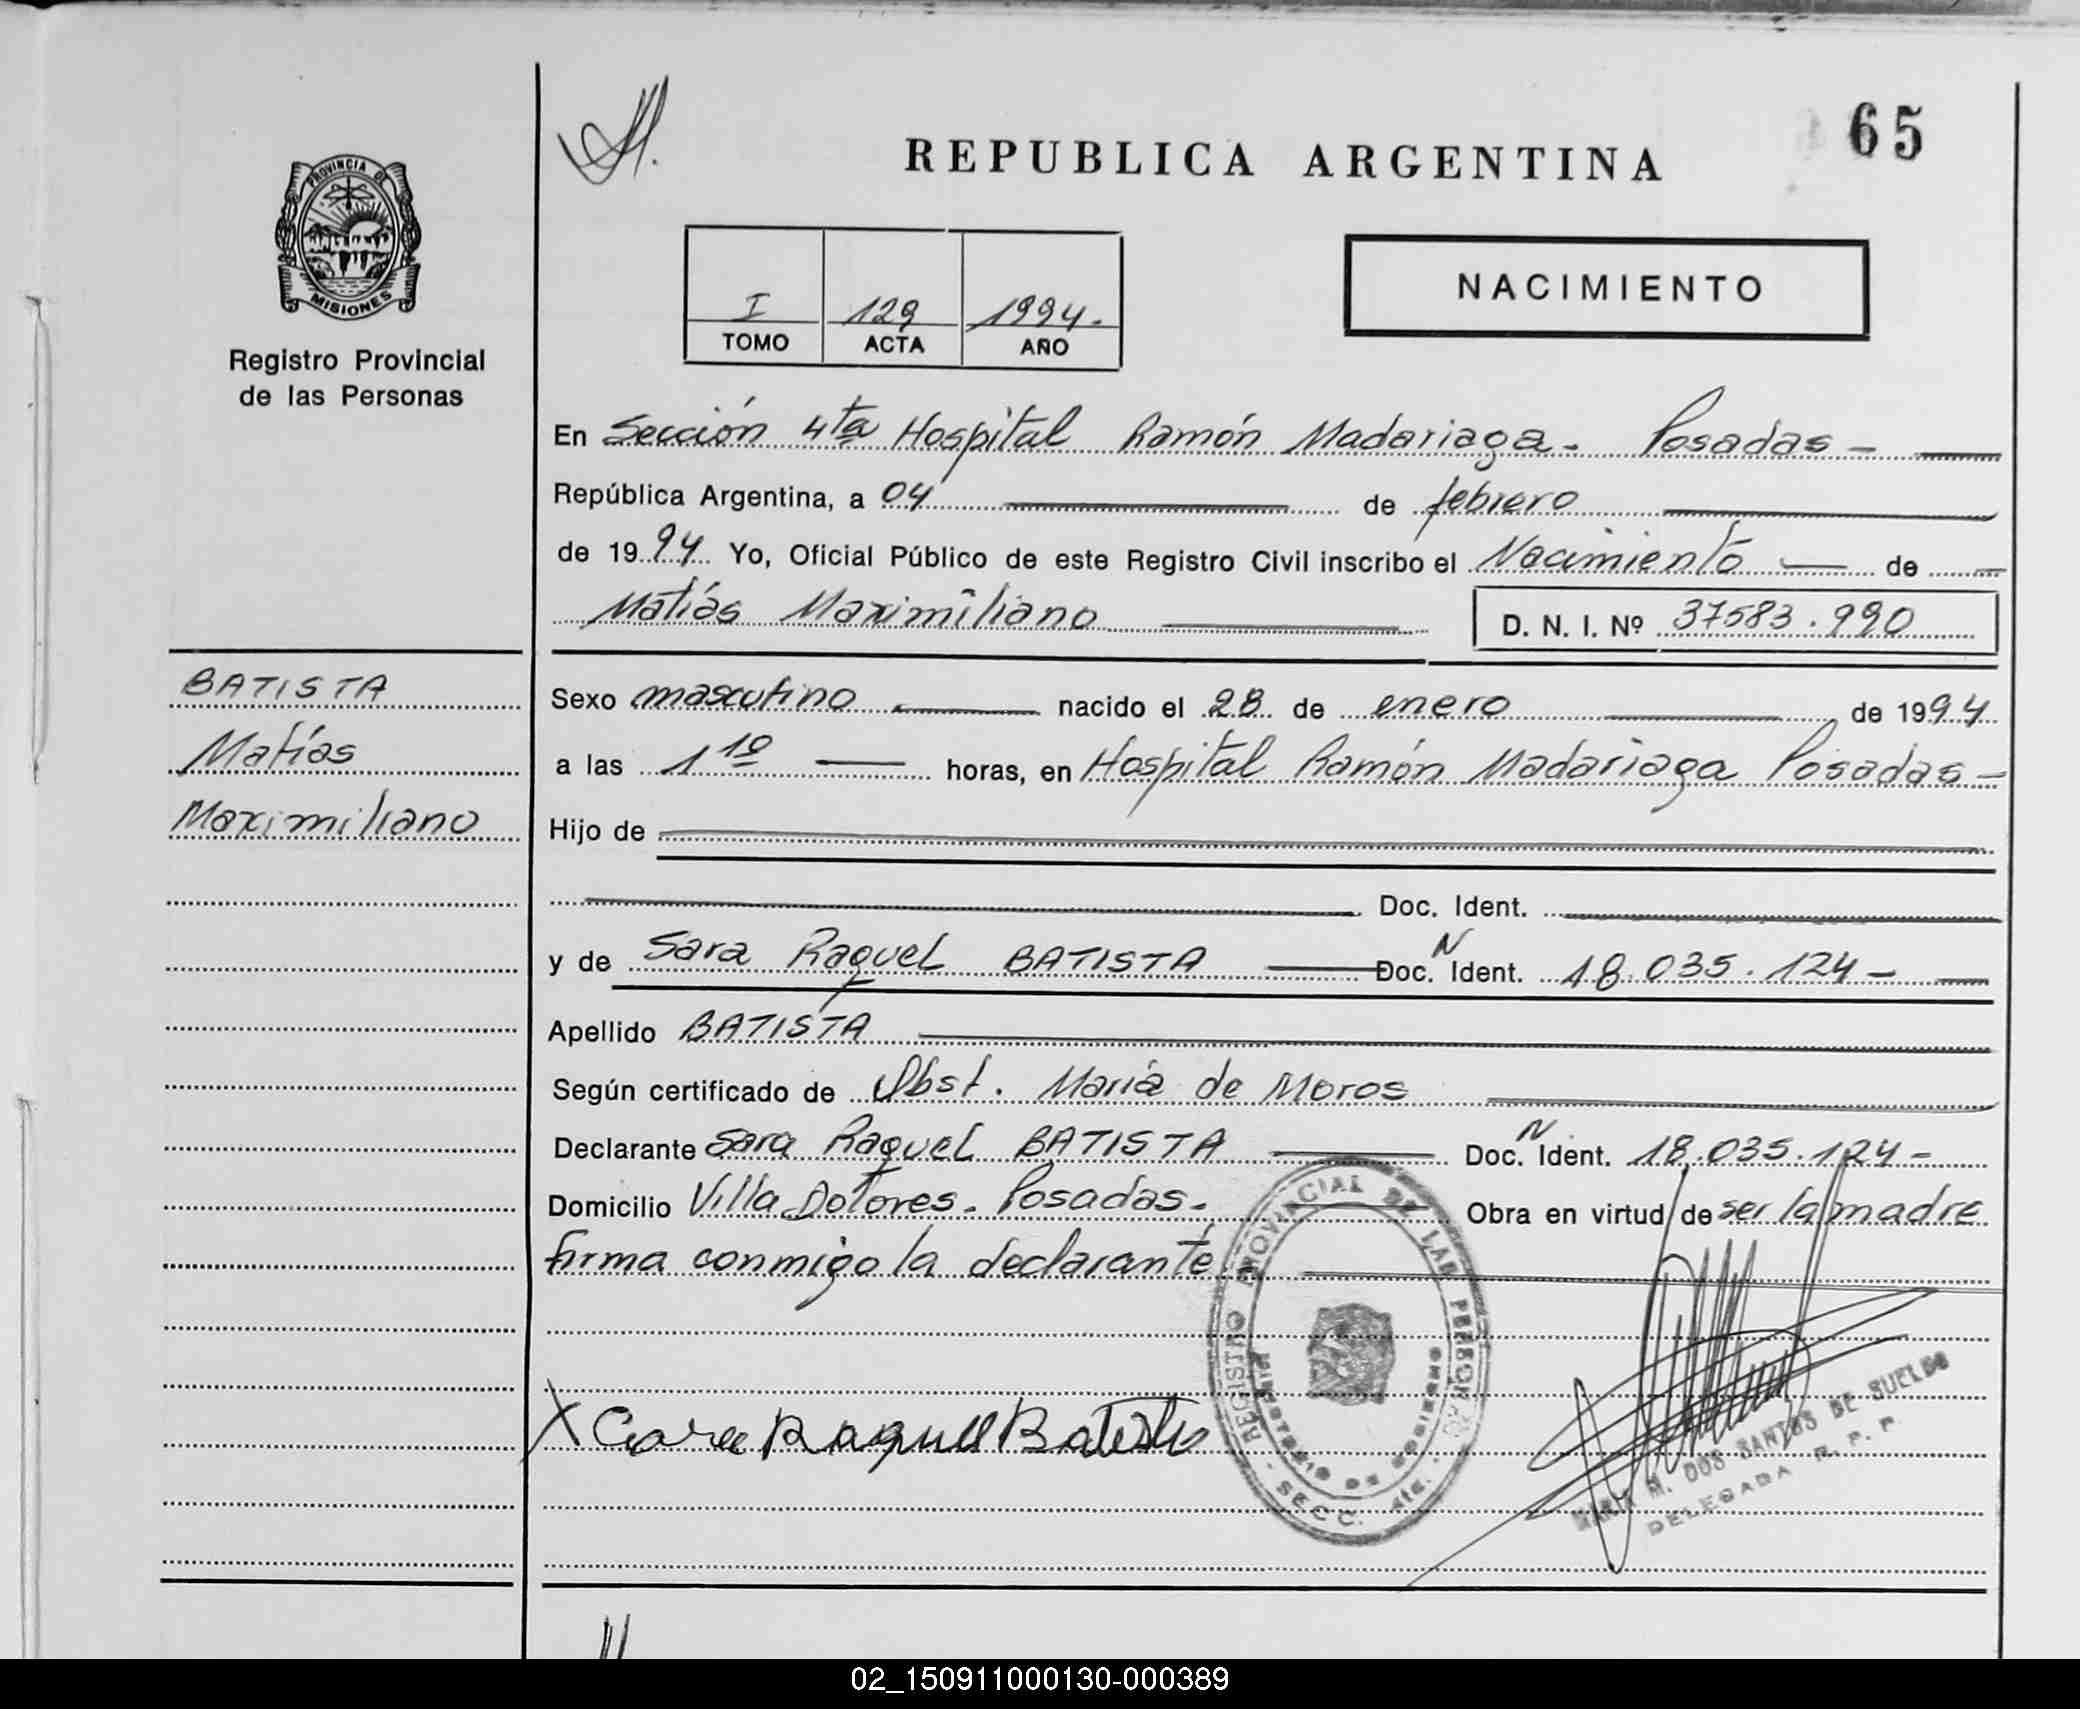 65
REPUBLICA ARGENTINA
PROVINCIA DE
MISIONES
Registro Provincial
de las Personas
I 129 1994.
TOMO ACTA AÑO
NACIMIENTO
En Sección 4ta Hospital Ramón Madariaga - Posadas -
República Argentina, a 04 de febrero
de 1994 Yo, Oficial Público de este Registro Civil inscribo el Nacimiento de
Matías Maximiliano D. N. I. Nº 37583.990
BATISTA
Matías
Maximiliano
Sexo masculino nacido el 28 de enero de 1994
a las 1 10 horas, en Hospital Ramón Madariaga Posadas -
Hijo de
Doc. Ident.
y de Sara Raquel BATISTA Doc. N Ident. 18.035.124 -
Apellido BATISTA
Según certificado de Obst. María de Moros
Declarante Sara Raquel BATISTA Doc. N Ident. 18.035.124 -
Domicilio Villa Dolores - Posadas - Obra en virtud de ser la madre
firma conmigo la declarante
REGISTRO PROVINCIAL DE LAS PERSONAS
MINISTERIO DE GOBIERNO
- SECC. 4ta. -
X Sara Raquel Batista
MARIA M. DOS SANTOS DE SUELDO
DELEGADA R. P. P.
02_150911000130-000389